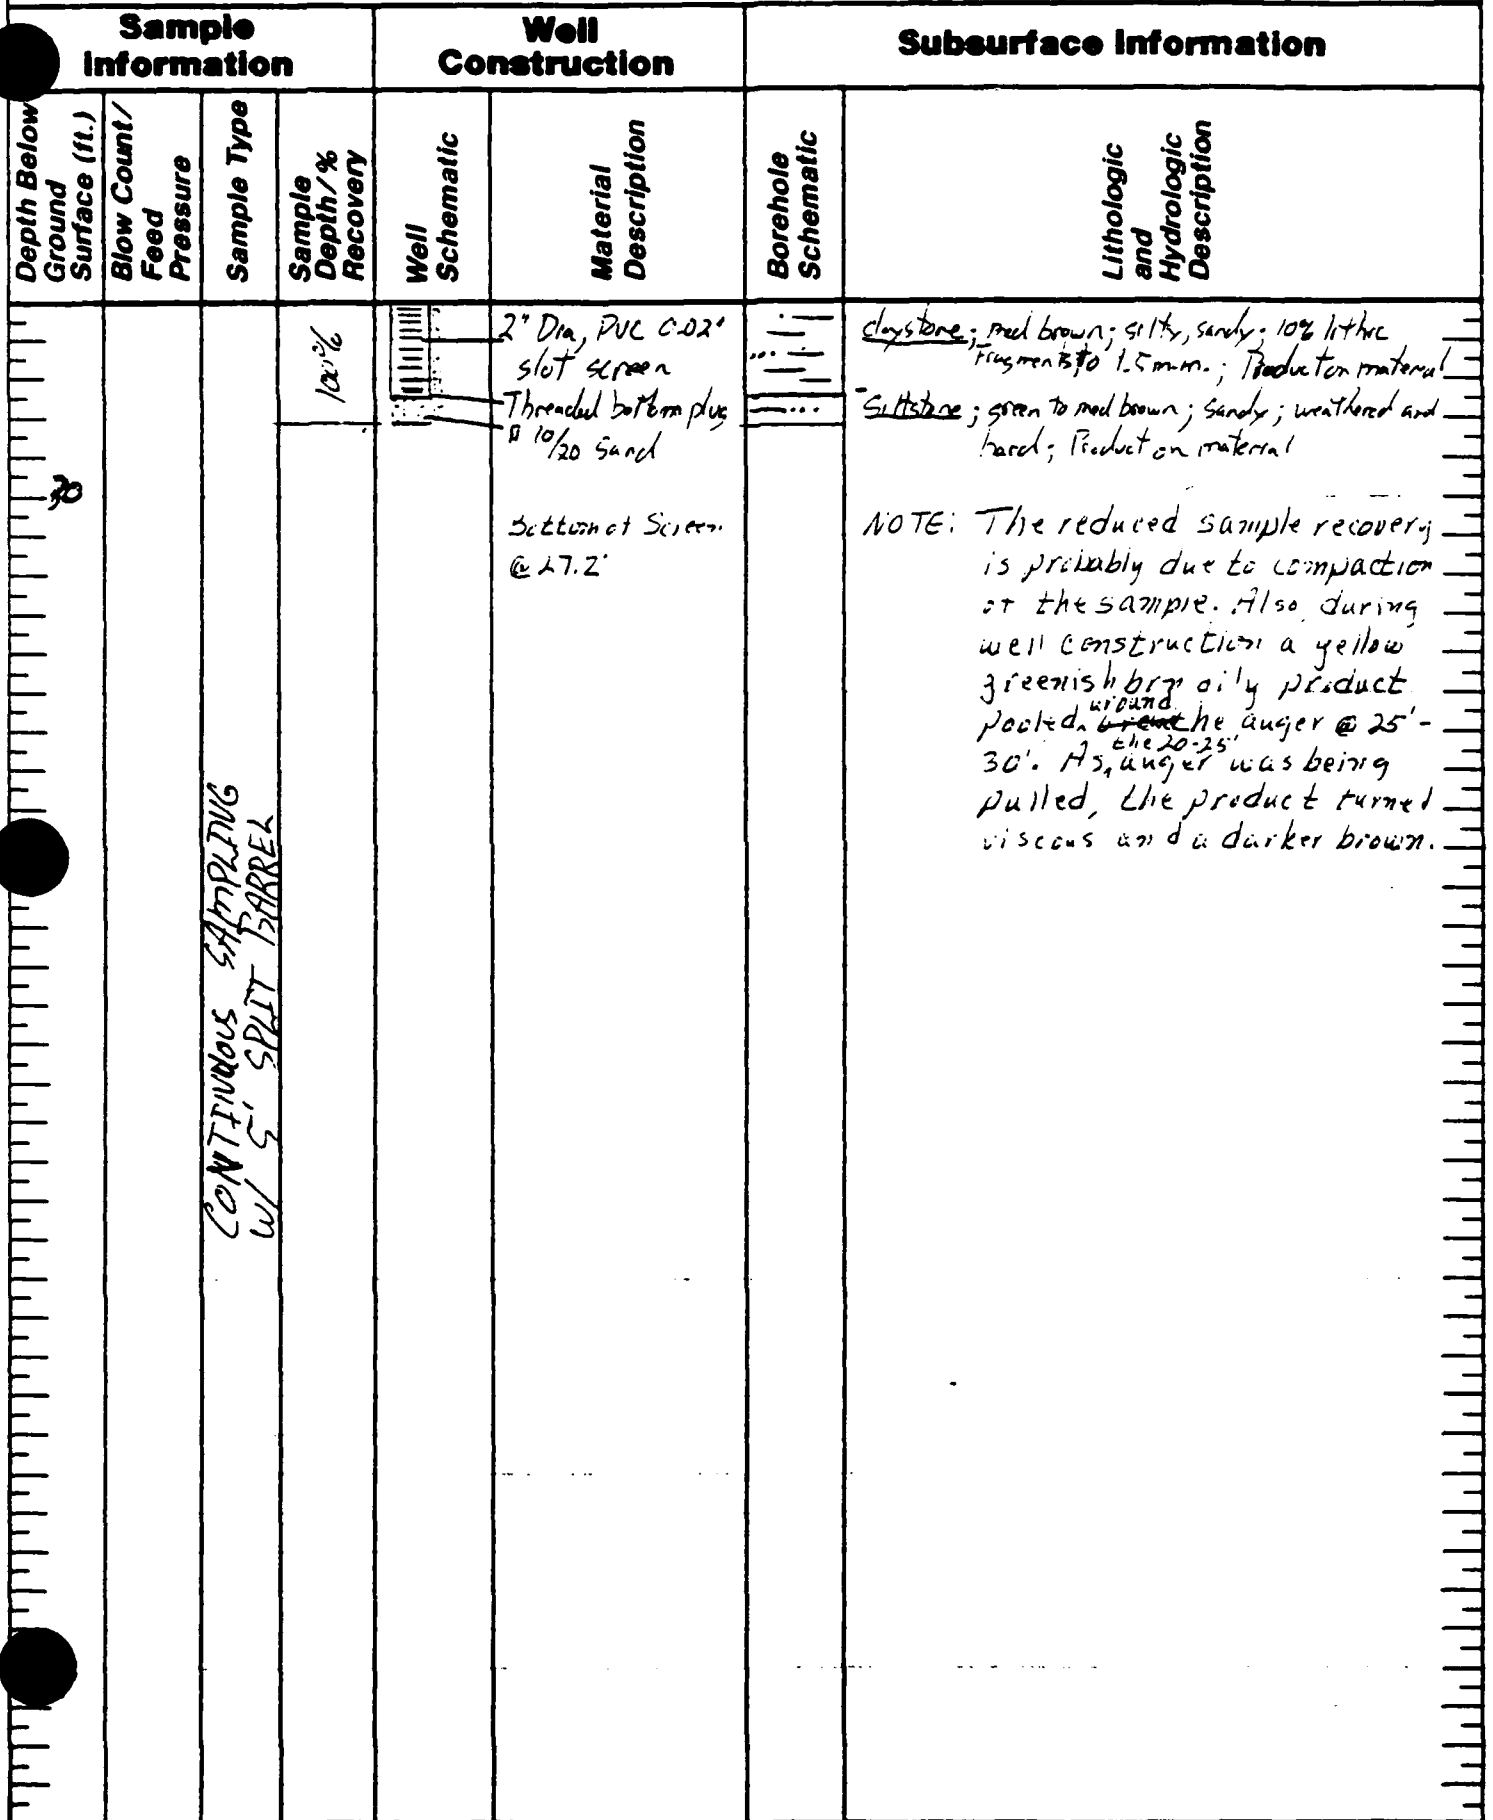 Sample
Information
Well
Construction
Subsurface Information
Depth Below
Ground
Surface (ft.)
Blow Count/
Feed
Pressure
Sample Type
Sample
Depth/%
Recovery
Well
Schematic
Material
Description
Borehole
Schematic
Lithologic
and
Hydrologic
Description
100%
2" Dia, PVC 0.02"
slot screen
Threaded bottom plug
10/20 Sand
Bottom of Screen
@ 27.2'
claystone; med brown; silty, sandy; 10% lithic
fragments to 1.5 m.m.; Product on material
Siltstone; green to med brown; sandy; weathered and
hard; Product on material
30
NOTE: The reduced sample recovery
is probably due to compaction
of the sample. Also during
well construction a yellow
greenish brn oily product
pooled around the auger @ 25'-
30'. As the 20-25' auger was being
pulled, the product turned
viscous and a darker brown.
CONTINUOUS SAMPLING
W/ 5' SPLIT BARREL